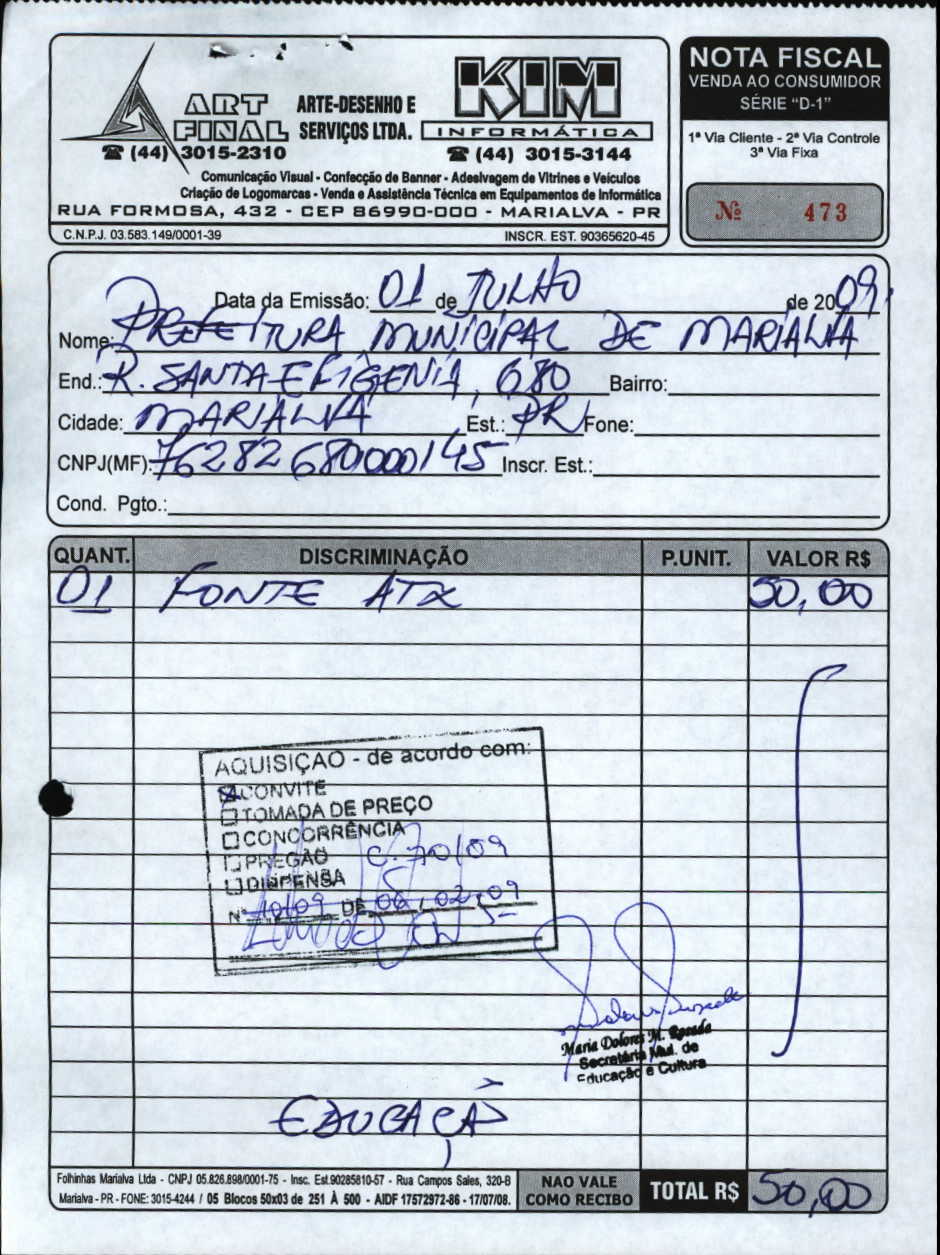 ART FINAL
☎ (44) 3015-2310
ARTE-DESENHO E
SERVIÇOS LTDA.
KIM
INFORMÁTICA
☎ (44) 3015-3144
Comunicação Visual - Confecção de Banner - Adesivagem de Vitrines e Veículos
Criação de Logomarcas - Venda e Assistência Técnica em Equipamentos de Informática
RUA FORMOSA, 432 - CEP 86990-000 - MARIALVA - PR
C.N.P.J. 03.583.149/0001-39 INSCR. EST. 90365620-45
NOTA FISCAL
VENDA AO CONSUMIDOR
SÉRIE “D-1”
1ª Via Cliente - 2ª Via Controle
3ª Via Fixa
Nº 473
Data da Emissão: 01 de JULHO de 2009
Nome: PREFEITURA MUNICIPAL DE MARIALVA
End.: R. SANTA EFIGENIA, 680 Bairro:
Cidade: MARIALVA Est.: PR Fone:
CNPJ(MF): 76282680000145 Inscr. Est.:
Cond. Pgto.:
QUANT. DISCRIMINAÇÃO P.UNIT. VALOR R$
01 FONTE ATX 50,00
AQUISIÇÃO - de acordo com:
CONVITE
TOMADA DE PREÇO
CONCORRÊNCIA
PREGÃO C. 70/09
DISPENSA
Nº 10/09 DE 06/02/09
Maria Dolores M. Rosada
Secretária Mul. de
Educação e Cultura
EDUCAÇÃO
Folhinhas Marialva Ltda - CNPJ 05.826.898/0001-75 - Insc. Est.90285810-57 - Rua Campos Sales, 320-B
Marialva - PR - FONE: 3015-4244 / 05 Blocos 50x03 de 251 À 500 - AIDF 17572972-86 - 17/07/08.
NAO VALE
COMO RECIBO
TOTAL R$ 50,00